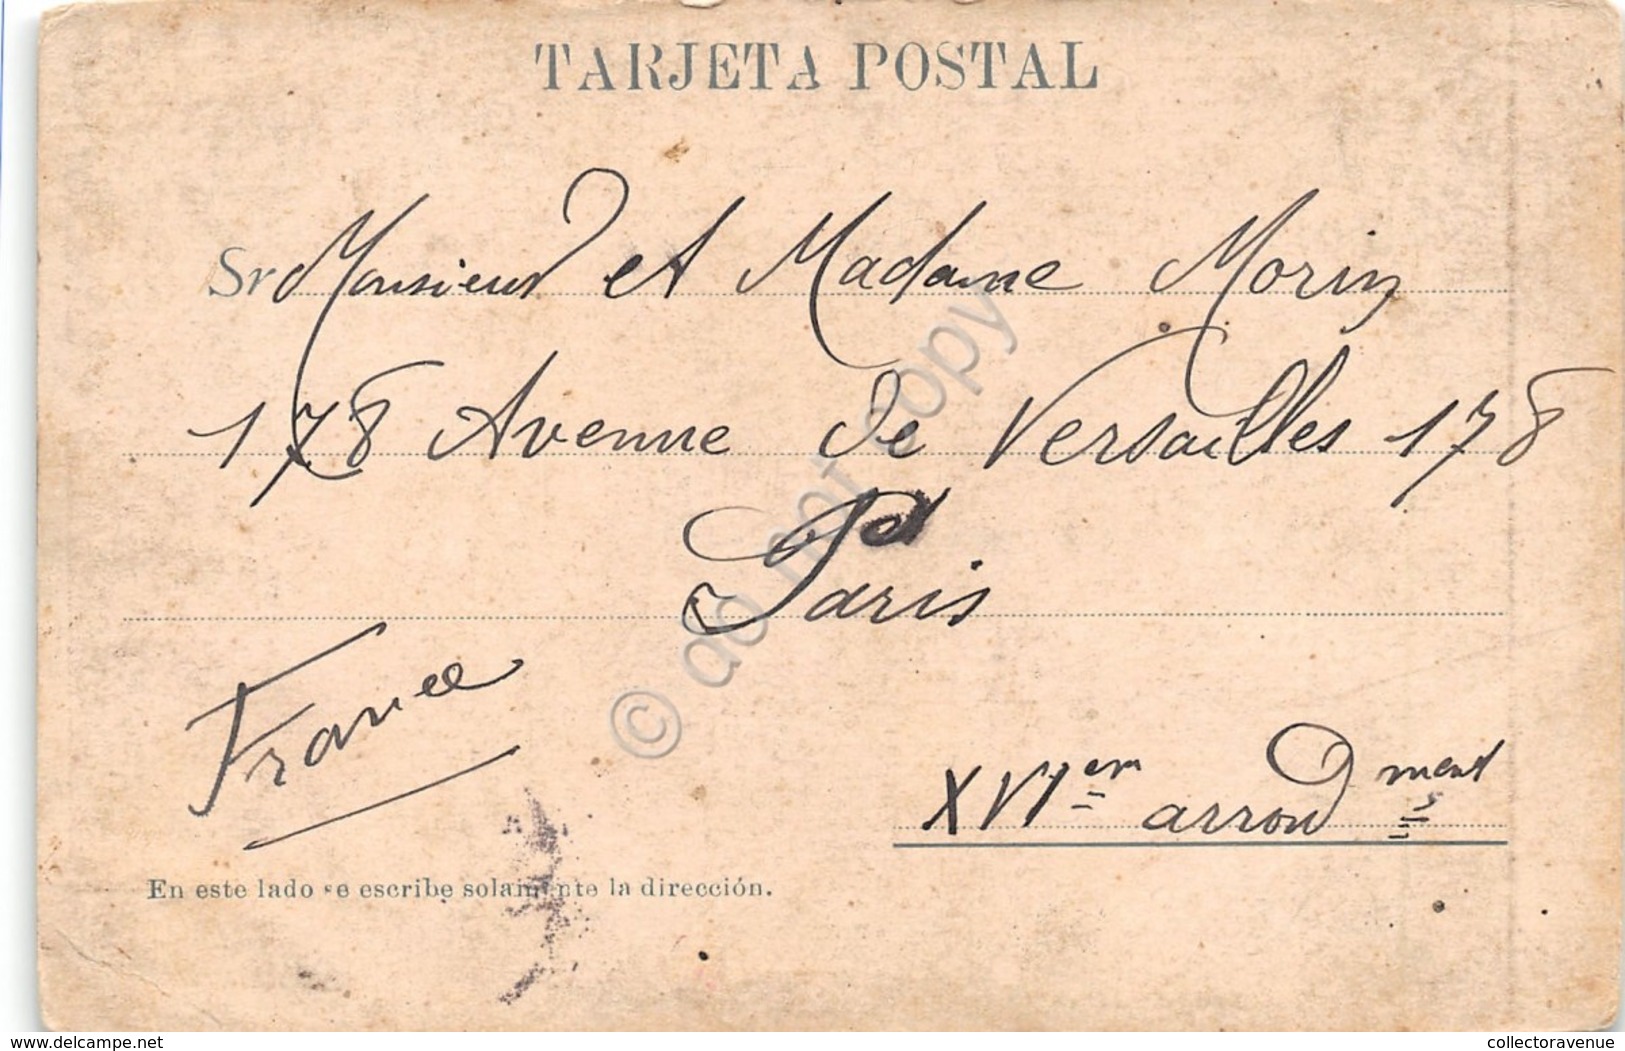 TARJETA POSTAL
Sr Monsieur et Madame Morin
178 Avenue de Versailles 178
Paris
France
XVIem arrondment
En este lado se escribe solamente la dirección.
© do not copy
www.delcampe.net
collectoravenue